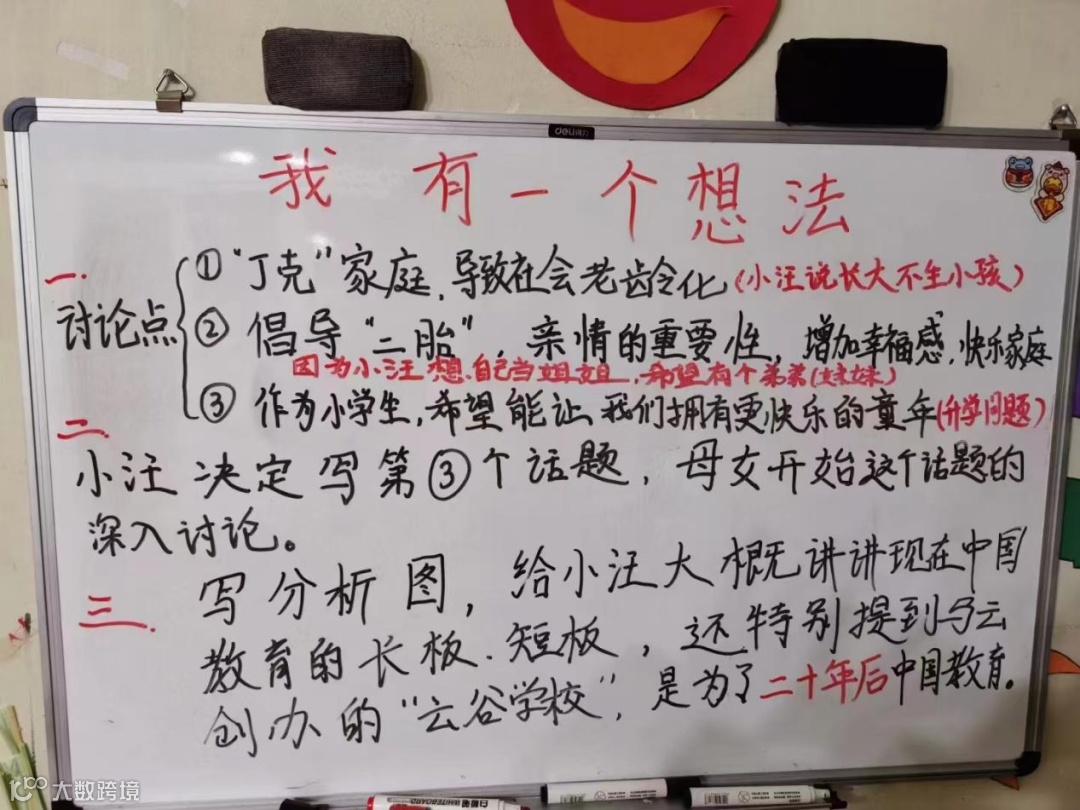 deli得力
我有一个想法
一.
讨论点
①“丁克”家庭,导致社会老龄化(小汪说长大不生小孩)
②倡导“二胎”,亲情的重要性,增加幸福感,快乐家庭
因为小汪想自己当姐姐,希望有个弟弟(妹妹)
③作为小学生,希望能让我们拥有更快乐的童年(升学问题)
二.
小汪决定写第③个话题,母女开始这个话题的
深入讨论。
三.
写分析图,给小汪大概讲讲现在中国
教育的长板、短板,还特别提到马云
创办的“云谷学校”,是为了二十年后中国教育。
白板笔 WHITEBOARD
大数跨境